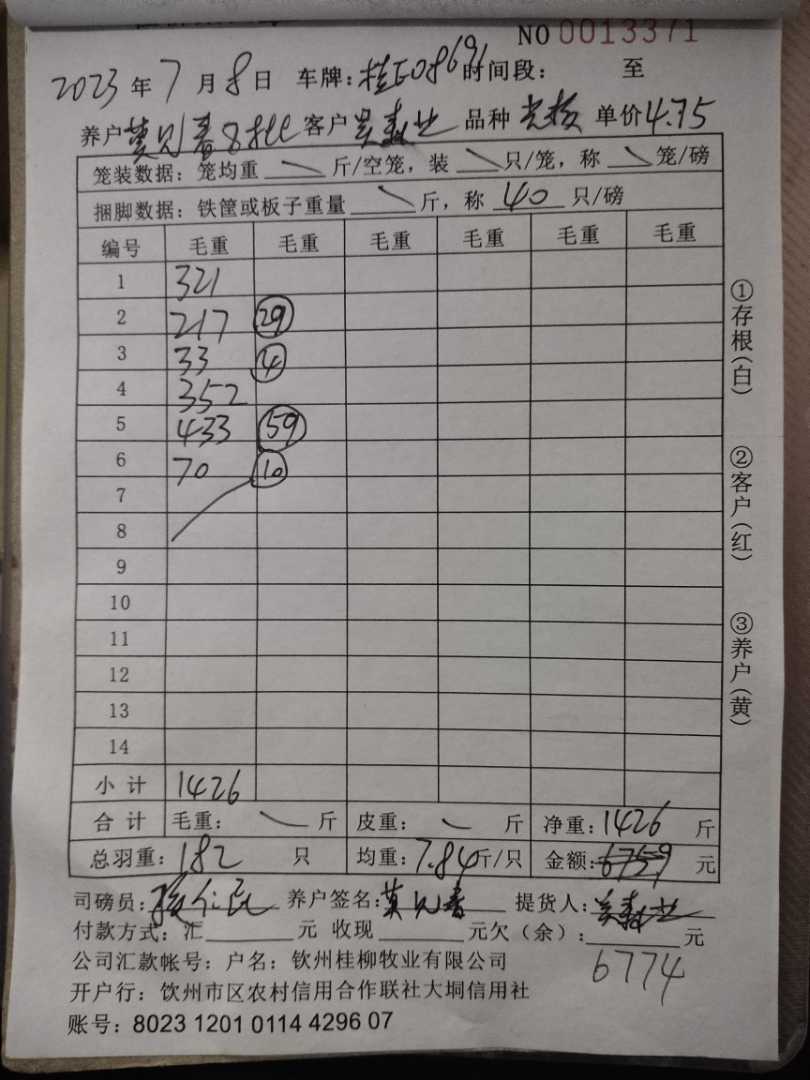 NO 0013371
2023 年 7 月 8 日 车牌: 桂E08691 时间段: 至
养户 莫兄春8批 客户 吴森业 品种 单价 4.75
笼装数据: 笼均重 斤/空笼, 装 只/笼, 称 笼/磅
捆脚数据: 铁筐或板子重量 斤, 称 40 只/磅
编号 毛重 毛重 毛重 毛重 毛重 毛重
1 321
2 217 29
3 33 4
4 352
5 433 59
6 70 10
7
8
9
10
11
12
13
14
小计 1426
合计 毛重: 斤 皮重: 斤 净重: 1426 斤
总羽重: 182 只 均重: 7.84 斤/只 金额: 6759 元
司磅员: 养户签名: 莫兄春 提货人: 吴森业
付款方式: 汇 元 收现 元欠(余): 元
6774
公司汇款帐号: 户名: 钦州桂柳牧业有限公司
开户行: 钦州市区农村信用合作联社大垌信用社
账号: 8023 1201 0114 4296 07
①存根(白)
②客户(红)
③养户(黄)